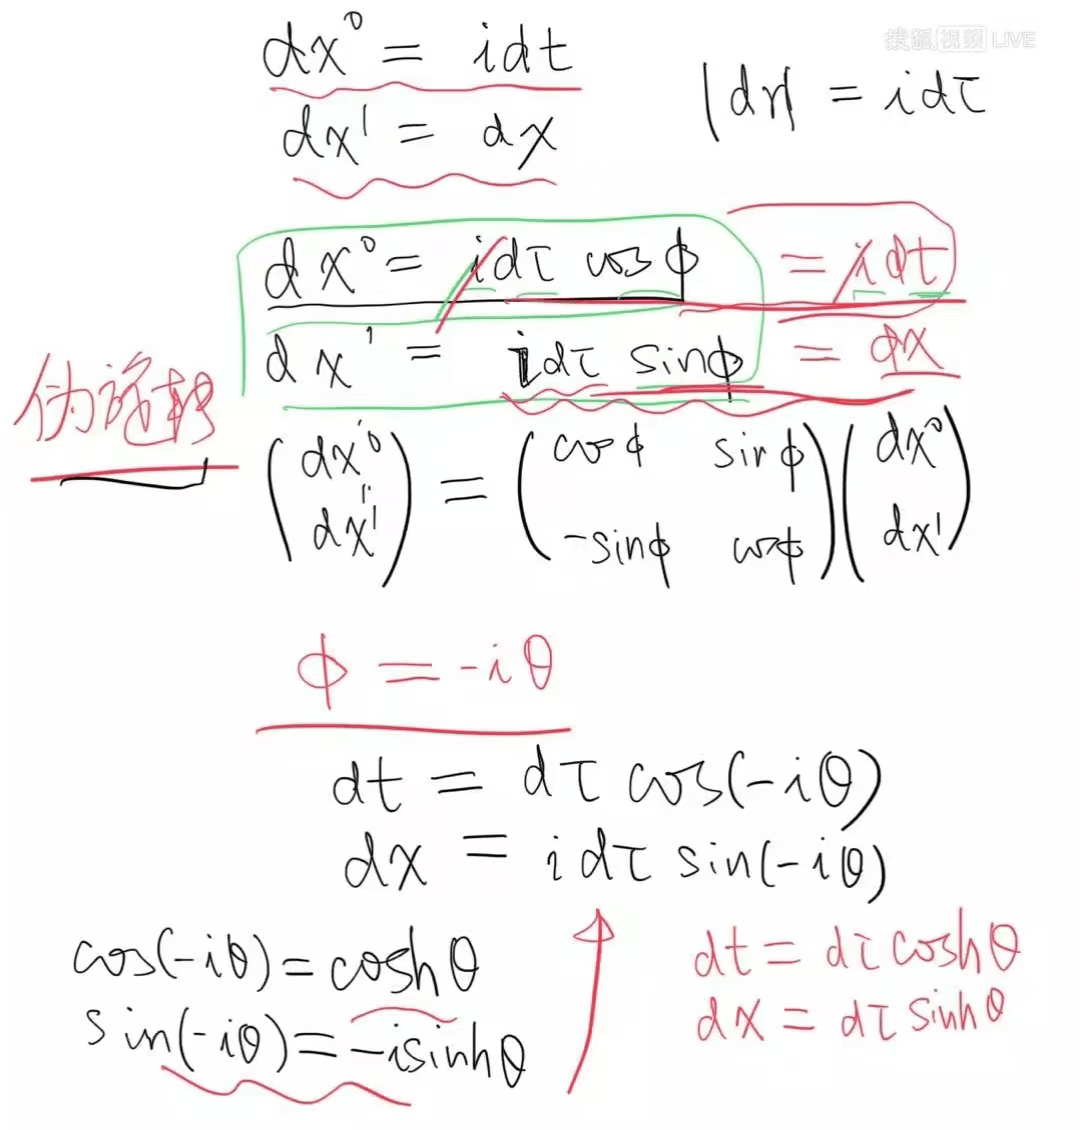 搜狐视频 LIVE
dx⁰ = idt
|dr| = idτ
dx¹ = dx
dx⁰ = idτ cosϕ = idt
dx¹ = idτ sinϕ = dx
伪旋转
(dx'⁰ dx'¹) = (cosϕ sinϕ -sinϕ cosϕ)(dx⁰ dx¹)
ϕ = -iθ
dt = dτ cos(-iθ)
dx = idτ sin(-iθ)
cos(-iθ) = coshθ
sin(-iθ) = -isinhθ
dt = dτ coshθ
dx = dτ sinhθ